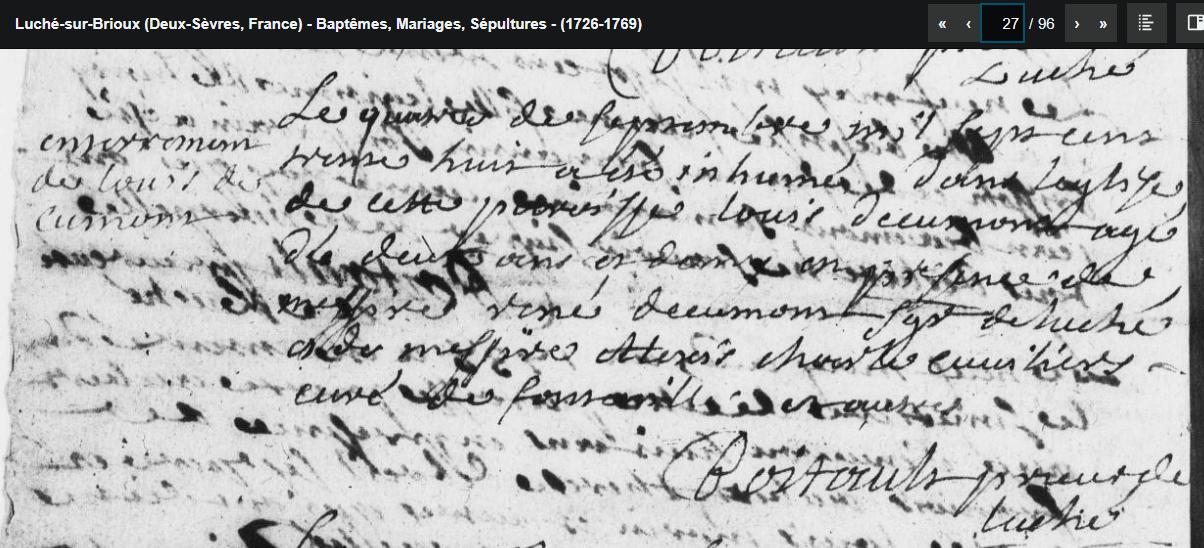 Luché-sur-Brioux (Deux-Sèvres, France) - Baptêmes, Mariages, Sépultures - (1726-1769)
« ‹ 27 / 96 › »
Luché
Le quatre de septembre mil sept cent
trente huit a esté inhumé dans leglise
de cette paroisse louis decumont agé
de deux ans et demy en presence de
messire rené decumont sgr de luché
et de messire Alexis charle
curé de et autres
prieur de
luché
enterrement
de louis de
cumont